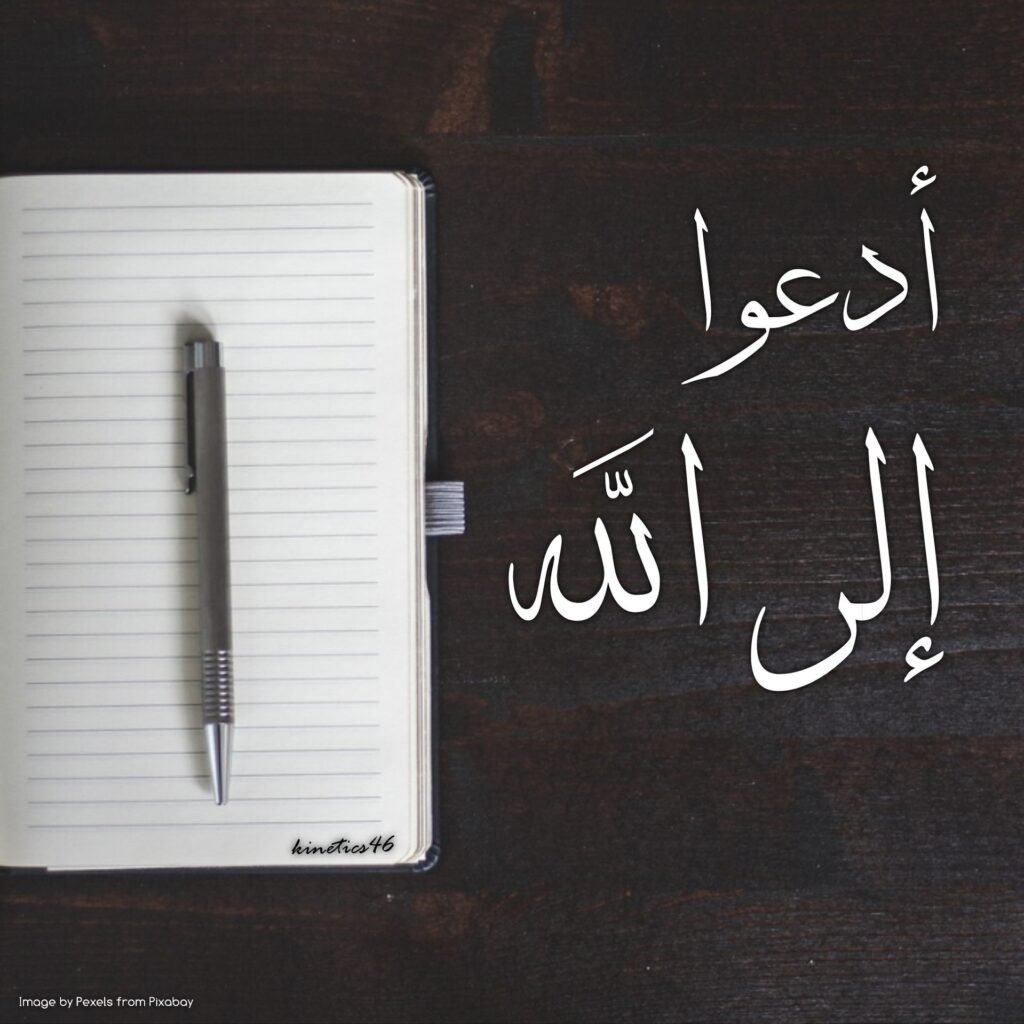 أدعوا
إلى اللَّه
kinetics46
Image by Pexels from Pixabay